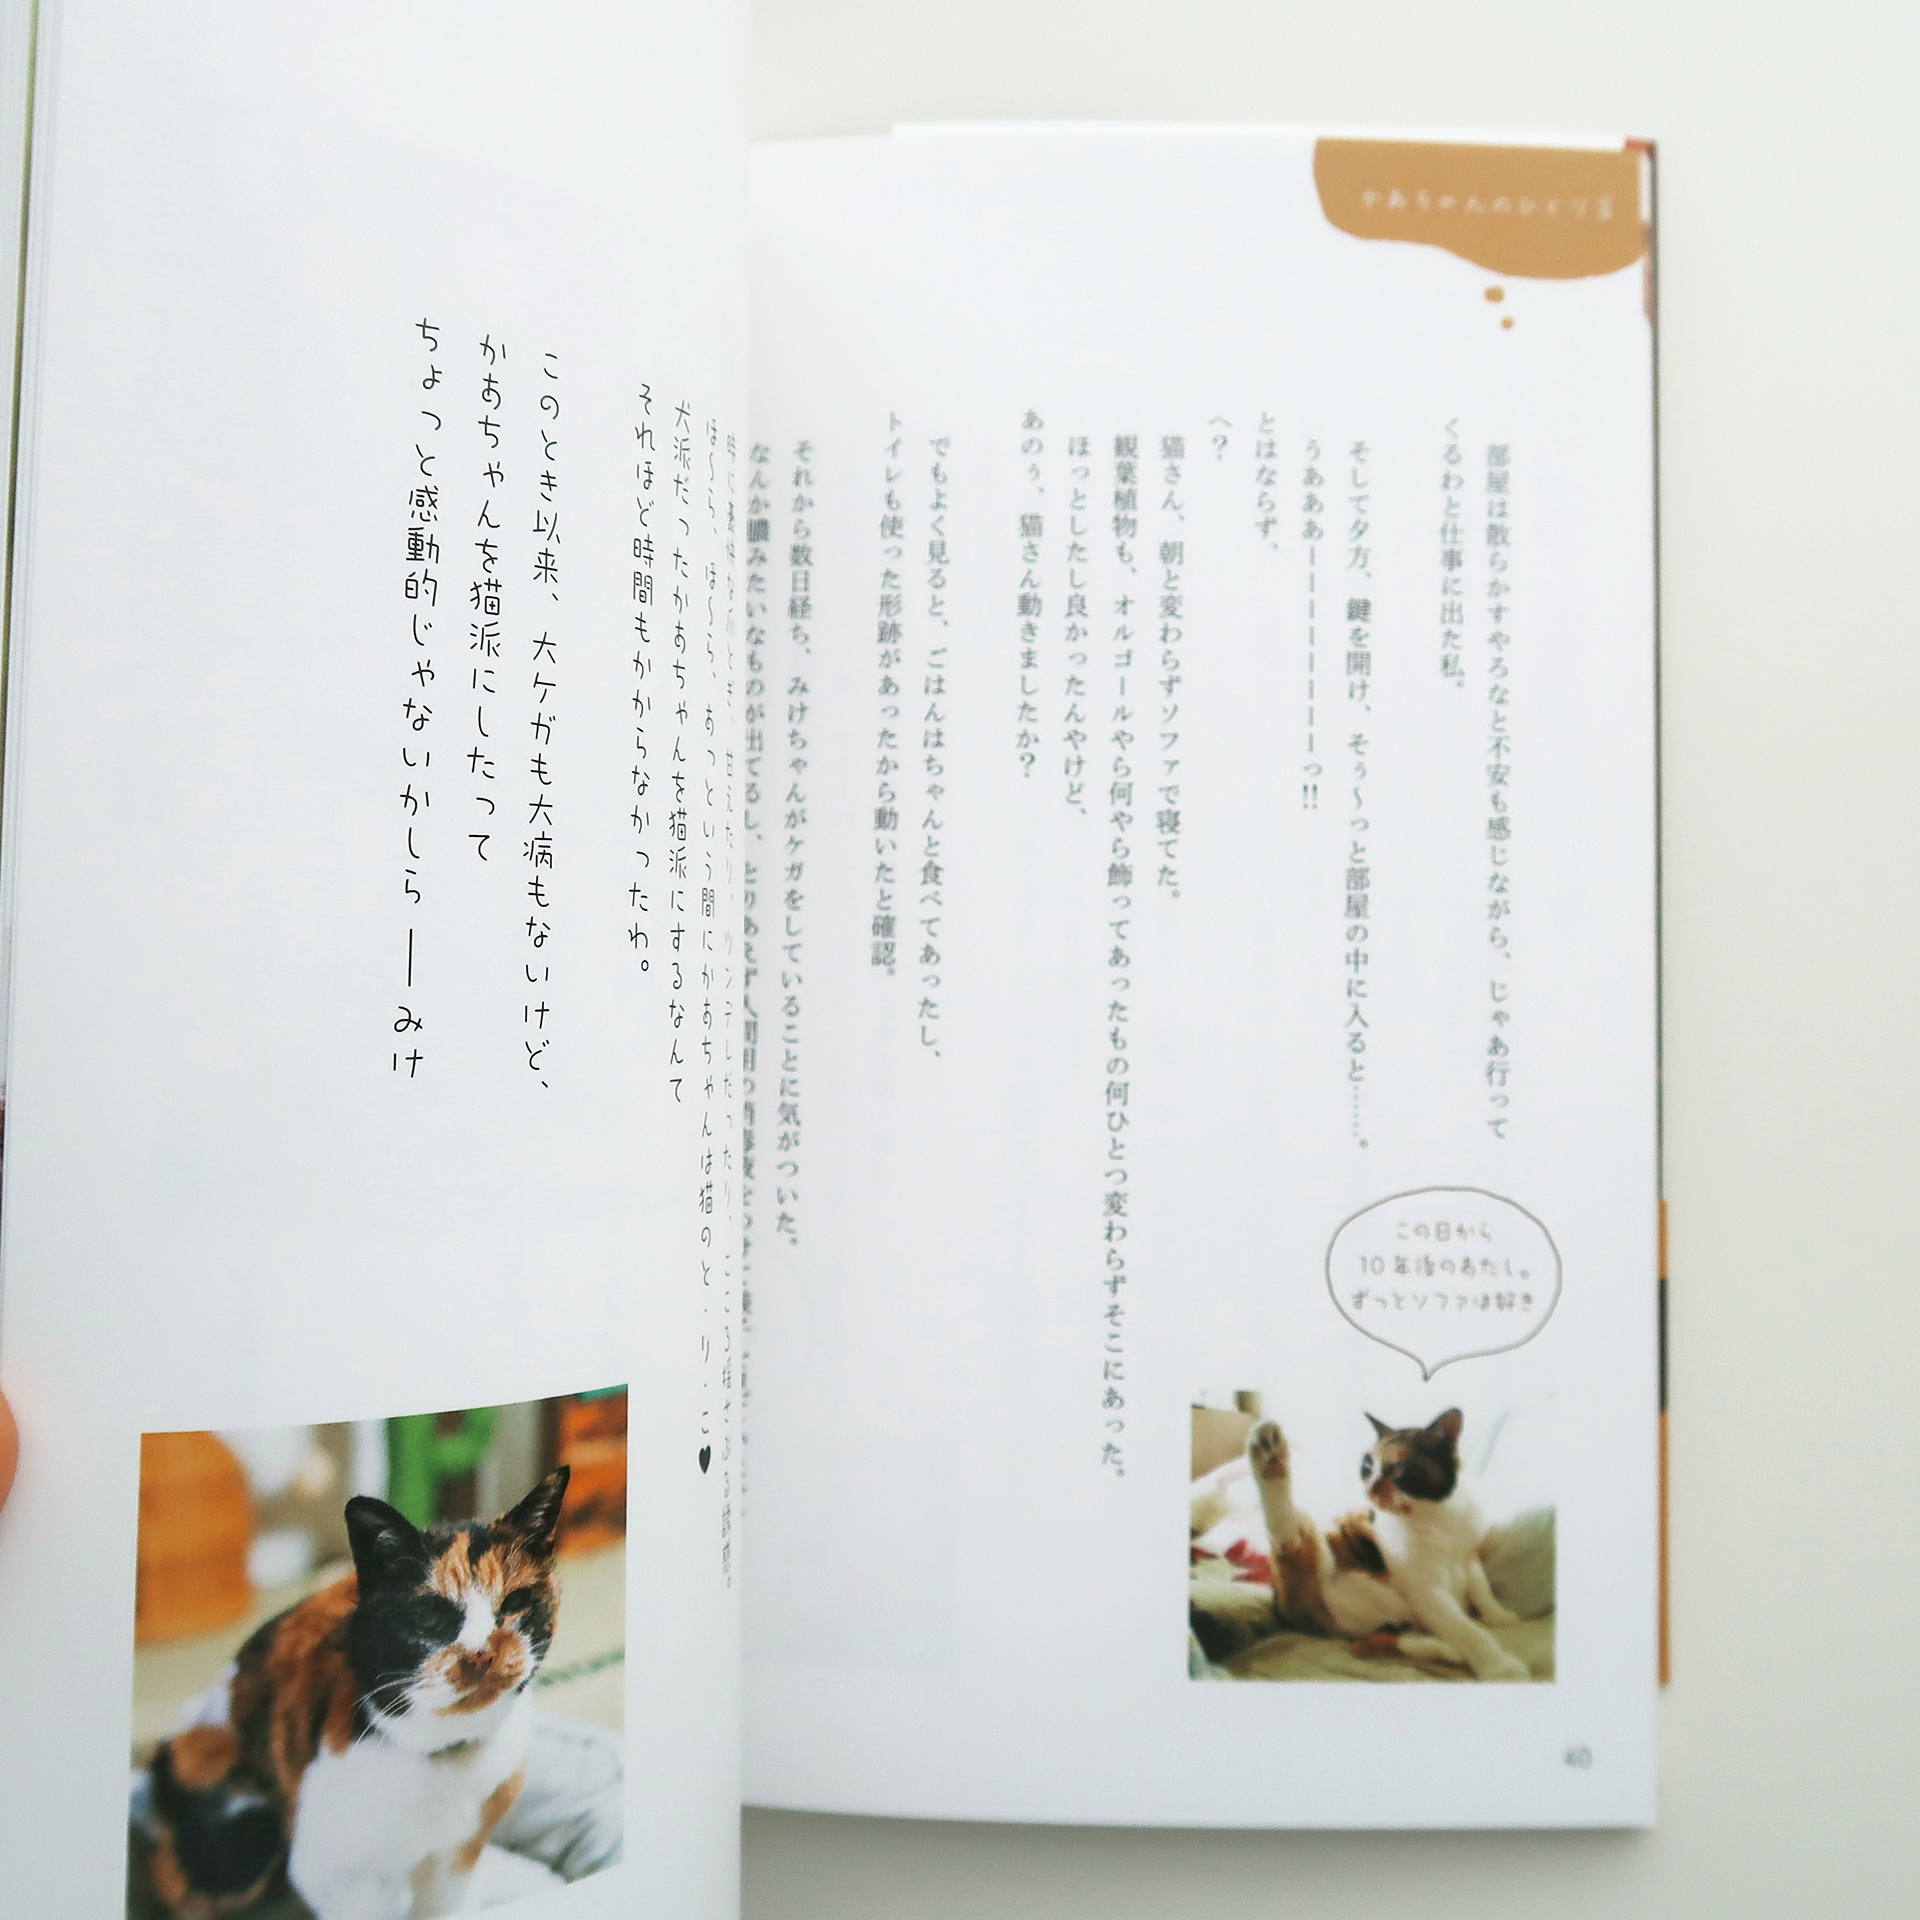 かあちゃんのひとり言
部屋は散らかすやろなと不安も感じながら、じゃあ行って
くるわと仕事に出た私。
そして夕方、鍵を開け、そぅ〜っと部屋の中に入ると……。
うあああーーーーーーーっ!!
とはならず、
へ？
猫さん、朝と変わらずソファで寝てた。
観葉植物も、オルゴールやら何やら飾ってあったもの何ひとつ変わらずそこにあった。
ほっとしたし良かったんやけど、
あのぅ、猫さん動きましたか？
でもよく見ると、ごはんはちゃんと食べてあったし、
トイレも使った形跡があったから動いたと確認。
それから数日経ち、みけちゃんがケガをしていることに気がついた。
なんか膿みたいなものが出てるし、とりあえず人間用の消毒液を
この日から
10年後のあたし。
ずっとソファは好き
40
甘えたり、ツンデレだったり、
ほ〜ら、ほ〜ら、あっという間にかあちゃんは猫のと・り・こ♥
犬派だったかあちゃんを猫派にするなんて
それほど時間もかからなかったわ。
このとき以来、大ケガも大病もないけど、
かあちゃんを猫派にしたって
ちょっと感動的じゃないかしら ──みけ